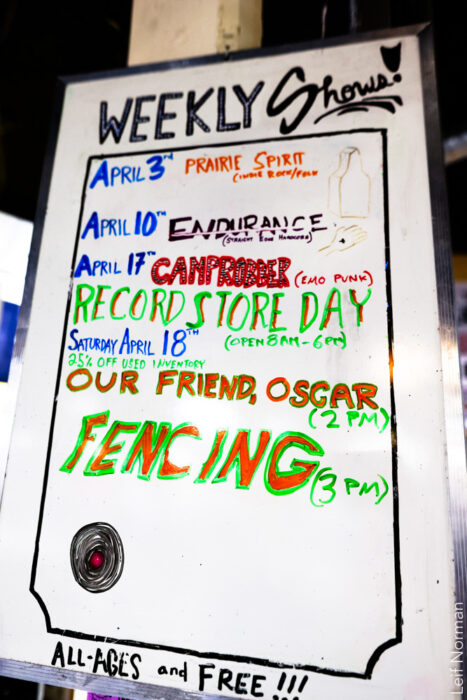 WEEKLY Shows!
APRIL 3RD PRAIRIE SPIRIT
(INDIE ROCK/FOLK
APRIL 10TH ENDURANCE
(STRAIGHT EDGE HARDCORE)
APRIL 17TH CAMPROBBER (EMO PUNK)
RECORD STORE DAY
SATURDAY APRIL 18TH (OPEN 8AM-6PM)
25% OFF USED INVENTORY
OUR FRIEND, OSCAR
(2 PM)
FENCING (3 PM)
ALL-AGES and FREE!!!
Leif Norman